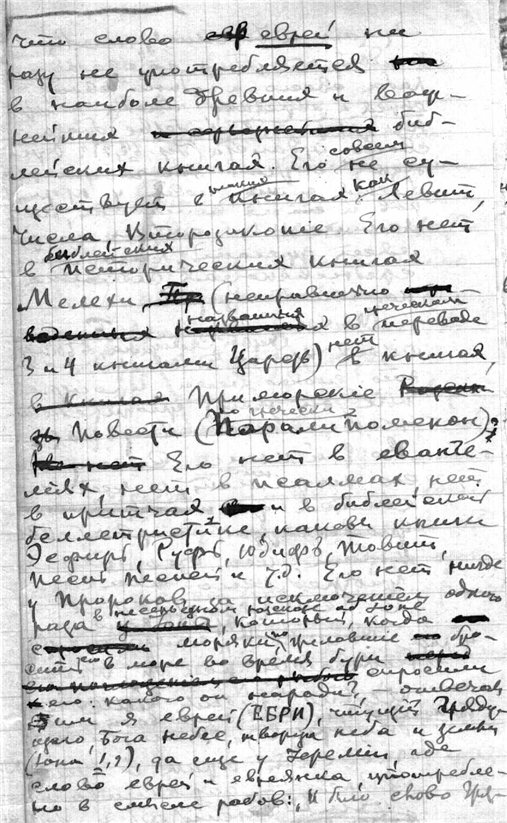 что слово евр еврей ни
разу не употребляется
в наиболе древния и важ-
нейших биб-
лейских книгах. Его совсем не су-
ществует в книгах как Левит,
Числа, Второзаконіе. Его нет
в библейских исторических книгах
Мелехи, (неправильно
названных в греческом переводе
3 и 4 книгами Царств) нет в книгах,
в книгах Приморскіе
Повести (по гречески Паралипоменон).
Его нет в еванге-
лиях нет в псалмах нет
в притчах и в библейской
беллетристике, каковы книги
Эсфирь, Руфь, Юдифь, Товит,
песнь песней и т.д. Его нет нигде
у Пророков за исключением одного
раза в рассказе об Ионе
который, когда
моряки, желавшие бро-
сить в море во время бури
спросили
его: какого он народа?, – отвечал
им я еврей (ЕБРИ), чтущий Гряду-
щего, Бога небес, творца неба и земли
(Иона 1,9), да еще у Іеремии где
слово еврей и евреянка, употребле-
но в смысле рабов: „И было слово Гря-